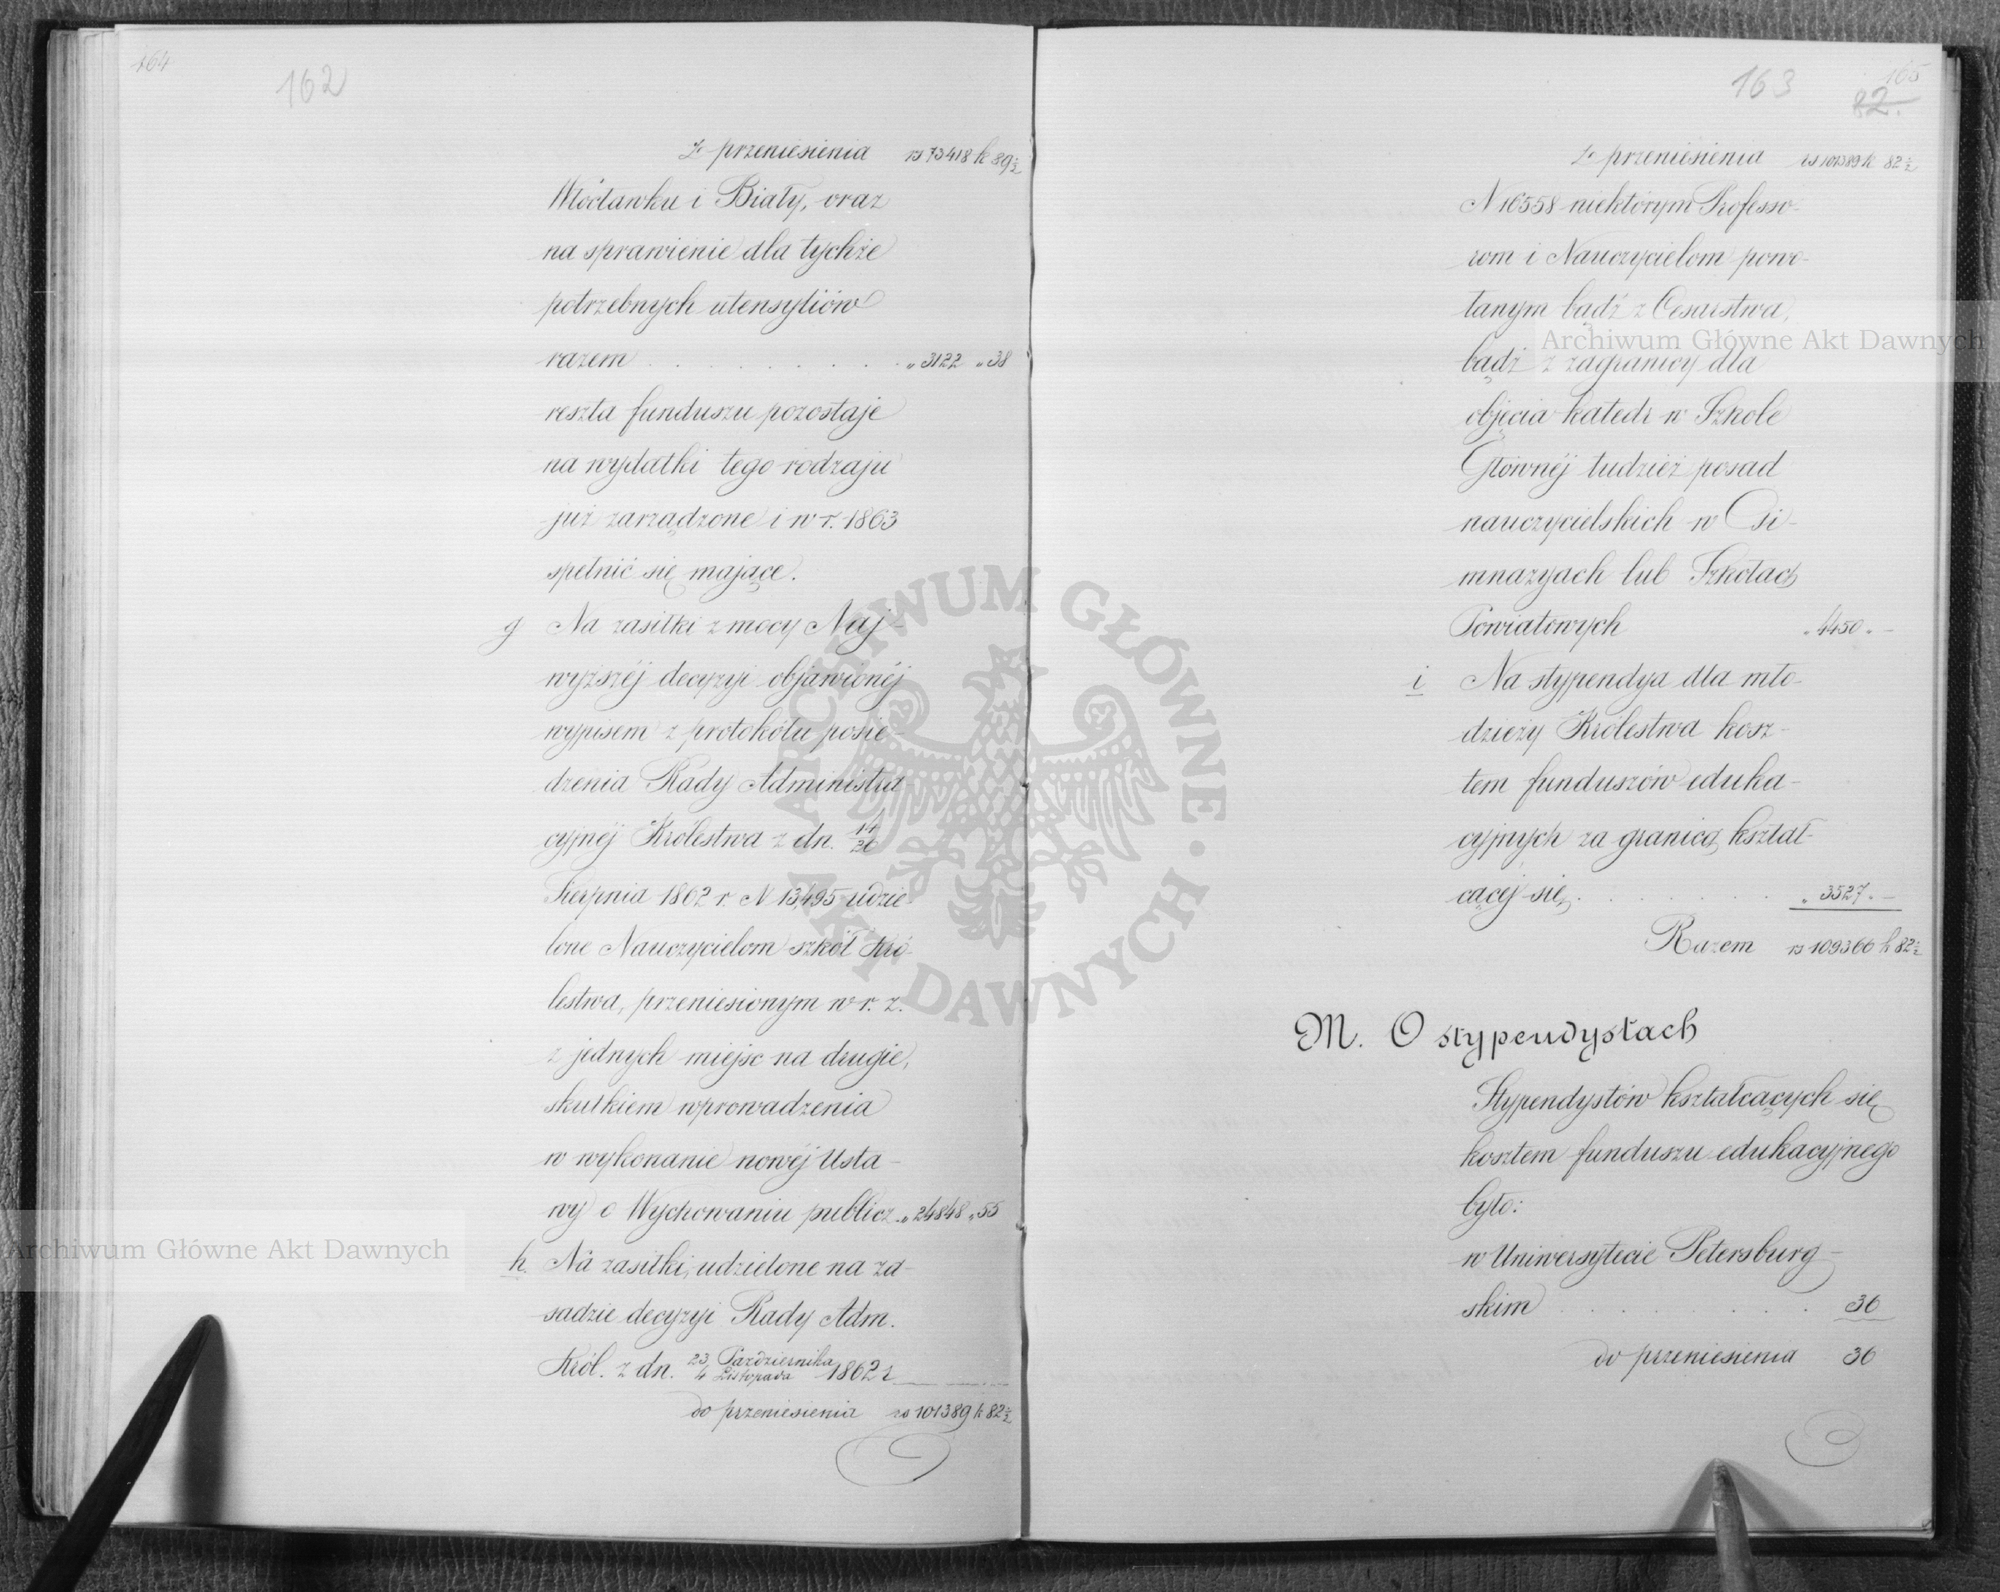 164
162
Z przeniesienia rs 73418 k 89½
Włocławku i Biały, oraz
na sprawienie dla tychże
potrzebnych utensyliów
razem . . . . . . . . . „ 3122 „ 38
reszta funduszu pozostaje
na wydatki tego rodzaju
już zarządzone i w r. 1863
spełnić się mające.
g Na zasiłki z mocy Naj-
wyższéj decyzyi objawionéj
wypisem z protokółu posie-
dzenia Rady Administra
cyjnéj Królestwa z dn. 14/26
Sierpnia 1862 r. N 13,495 udzie-
lone Nauczycielom szkół Kró-
lestwa, przeniesionym w r. z.
z jednych miejsc na drugie,
skutkiem wprowadzenia
w wykonanie nowéj Usta-
wy o Wychowaniu publicz. „ 24848 „ 55
h. Na zasiłki, udzielone na za-
sadzie decyzyi Rady Adm.
Król. z dn. 23 Października / 4 Listopada 1862 r
do przeniesienia rs 101389 k 82½
163
165
82.
Z przeniesienia rs 101389 k 82½
N 16558 niektórym Professo-
rom i Nauczycielom powo-
łanym bądź z Cesarstwa,
bądź z zagranicy dla
objęcia katedr w Szkole
Głównéj tudzież posad
nauczycielskich w Gi-
mnazyach lub Szkołach
Powiatowych „ 4450 „ —
i Na stypendya dla mło-
dzieży Królestwa kosz-
tem funduszów eduka-
cyjnych za granicą kształ-
cącej się . . . . . . . „ 3527 „ —
Razem rs 109366 k 82½
M. O stypendystach
Stypendystów kształcących się
kosztem funduszu edukacyjnego
było:
w Uniwersytecie Petersburg-
skim . . . . . . . 36
do przeniesienia 36
Archiwum Główne Akt Dawnych
Archiwum Główne Akt Dawnych
ARCHIWUM GŁÓWNE · AKT DAWNYCH ·